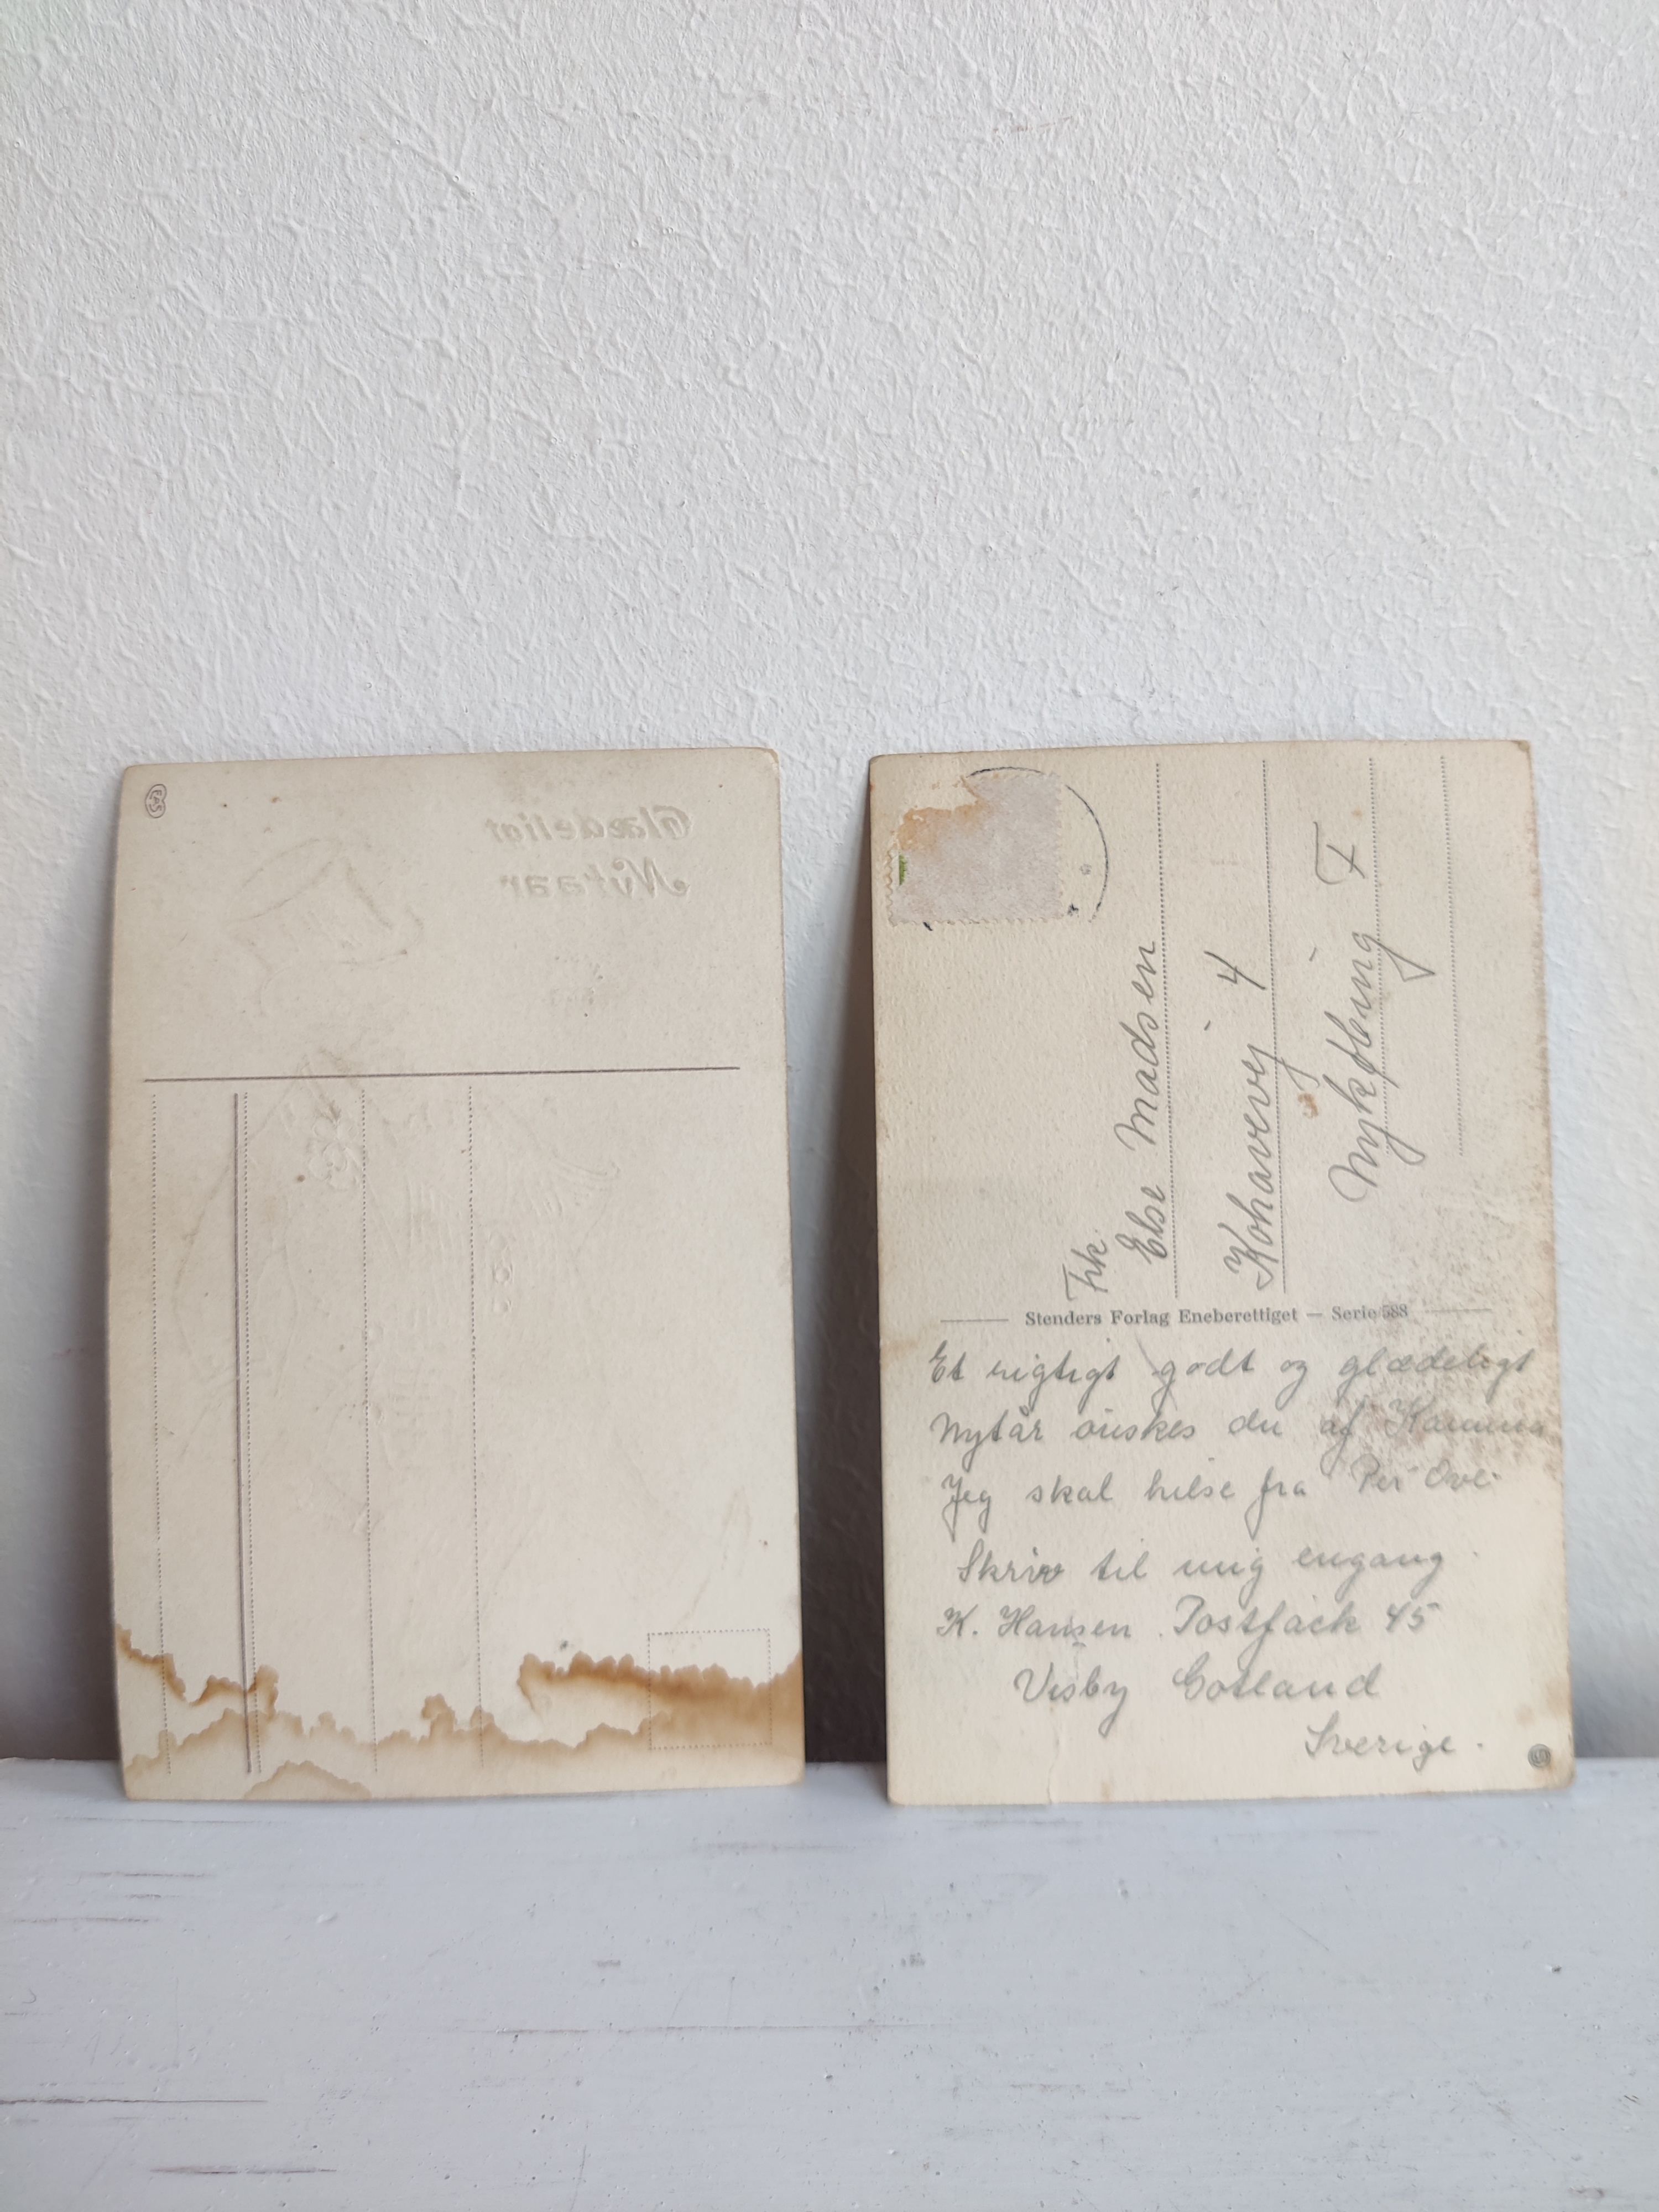 Glædeligt
Nytaar
Frk.
Else Madsen
Kohavevej 4
Nykøbing F
Stenders Forlag Eneberettiget — Serie 588
Et rigtigt godt og glædeligt
Nytår ønskes du af Kamma
Jeg skal hilse fra Per Ove.
Skriv til mig engang.
K. Hansen. Postfack 45
Visby Gotland
Sverige.